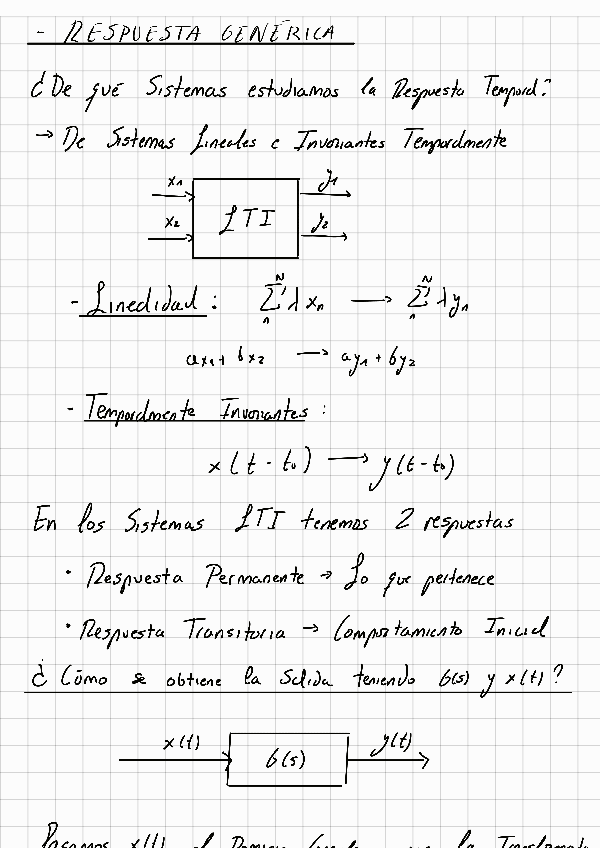 - RESPUESTA GENÉRICA
¿De qué Sistemas estudiamos la Respuesta Temporal?
→ De Sistemas Lineales e Invariantes Temporalmente
x1 y1
x2 LTI y2
- Linealidad : Σ λ xn → Σ λ yn
ax1 + bx2 → ay1 + by2
- Temporalmente Invariantes :
x(t - t0) → y(t - t0)
En los Sistemas LTI tenemos 2 respuestas
· Respuesta Permanente → Lo que pertenece
· Respuesta Transitoria → Comportamiento Inicial
¿Cómo se obtiene la Salida teniendo G(s) y x(t)?
x(t) G(s) y(t)
Pasamos x(t) al la Transformada